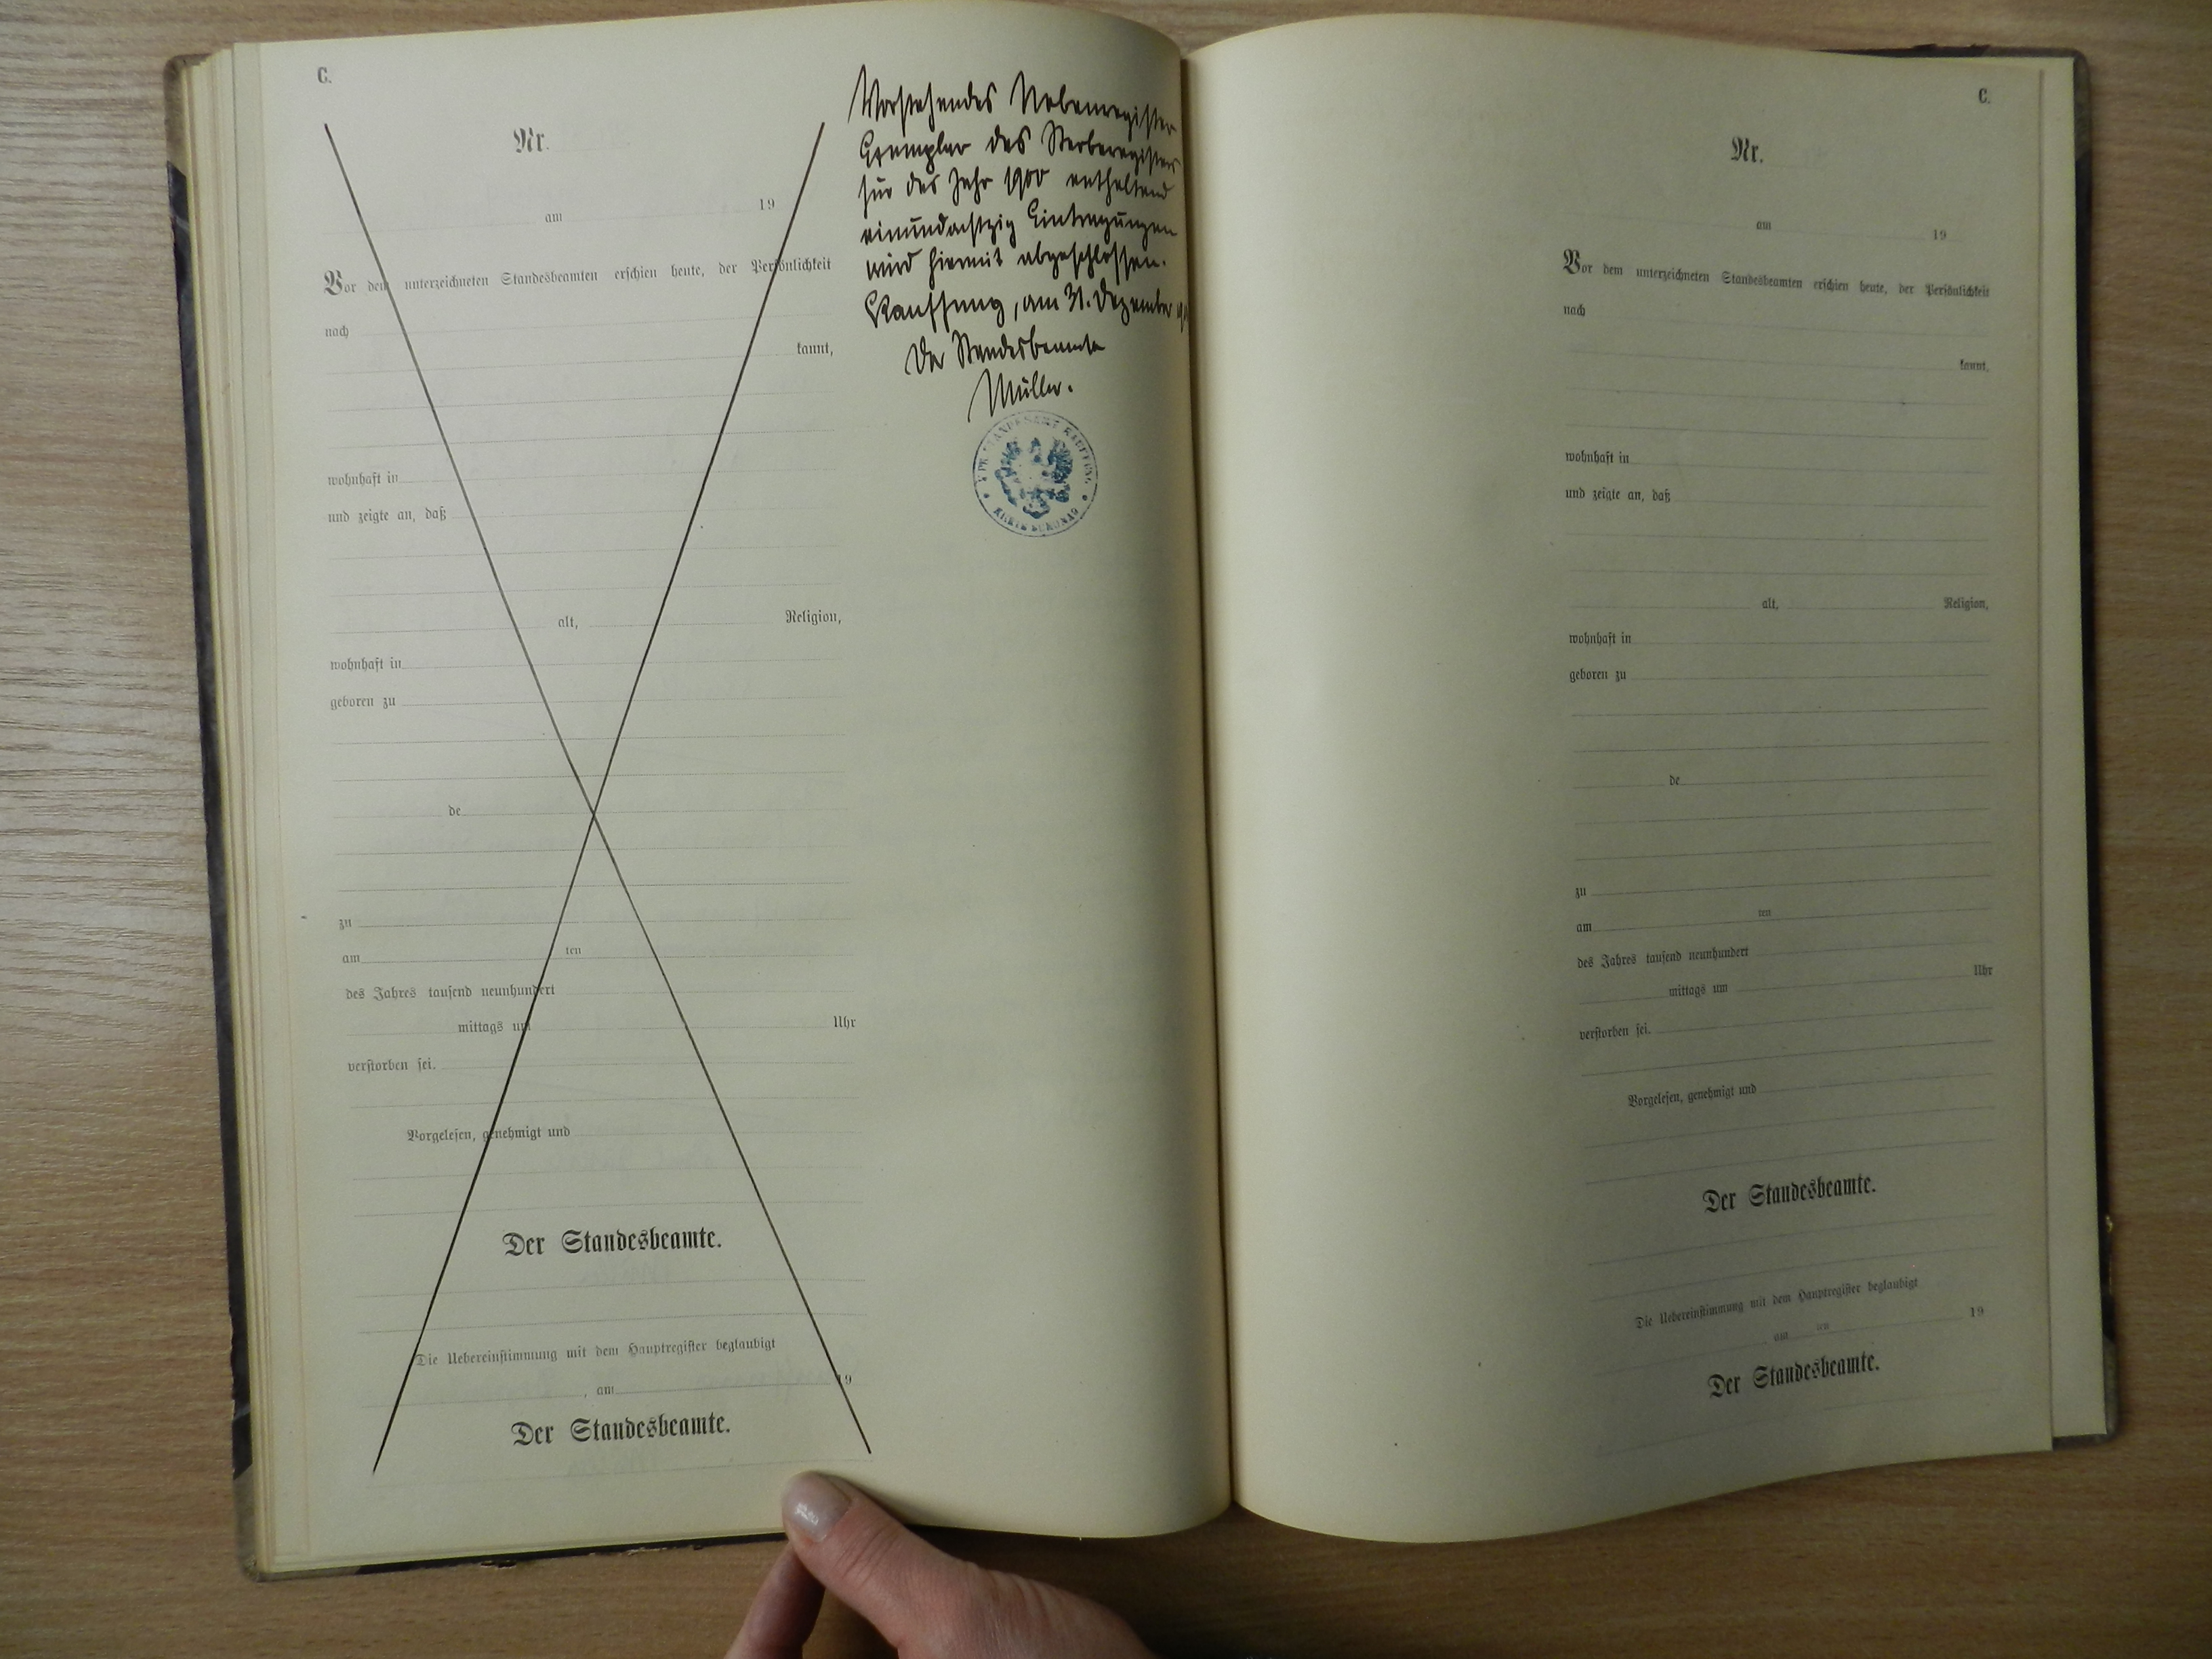 C.
Nr.
am 19
Vor dem unterzeichneten Standesbeamten erschien heute, der Persönlichkeit
nach
kannt,
wohnhaft in
und zeigte an, daß
alt, Religion,
wohnhaft in
geboren zu
de
zu
am ten
des Jahres tausend neunhundert
mittags um Uhr
verstorben sei.
Vorgelesen, genehmigt und
Der Standesbeamte.
Die Uebereinstimmung mit dem Hauptregister beglaubigt
, am 19
Der Standesbeamte.
Vorstehendes Nebenregister
Exemplar des Sterberegisters
für das Jahr 1900 enthaltend
einundachtzig Eintragungen
wird hiermit abgeschlossen.
Kauffung, am 31. Dezember
Der Standesbeamte
Müller.
STANDESAMT KAUFFUNG
KREIS SCHÖNAU
C.
Nr.
am 19
Vor dem unterzeichneten Standesbeamten erschien heute, der Persönlichkeit
nach
kannt,
wohnhaft in
und zeigte an, daß
alt, Religion,
wohnhaft in
geboren zu
de
zu
am ten
des Jahres tausend neunhundert
mittags um Uhr
verstorben sei.
Vorgelesen, genehmigt und
Der Standesbeamte.
Die Uebereinstimmung mit dem Hauptregister beglaubigt
, am 19
Der Standesbeamte.